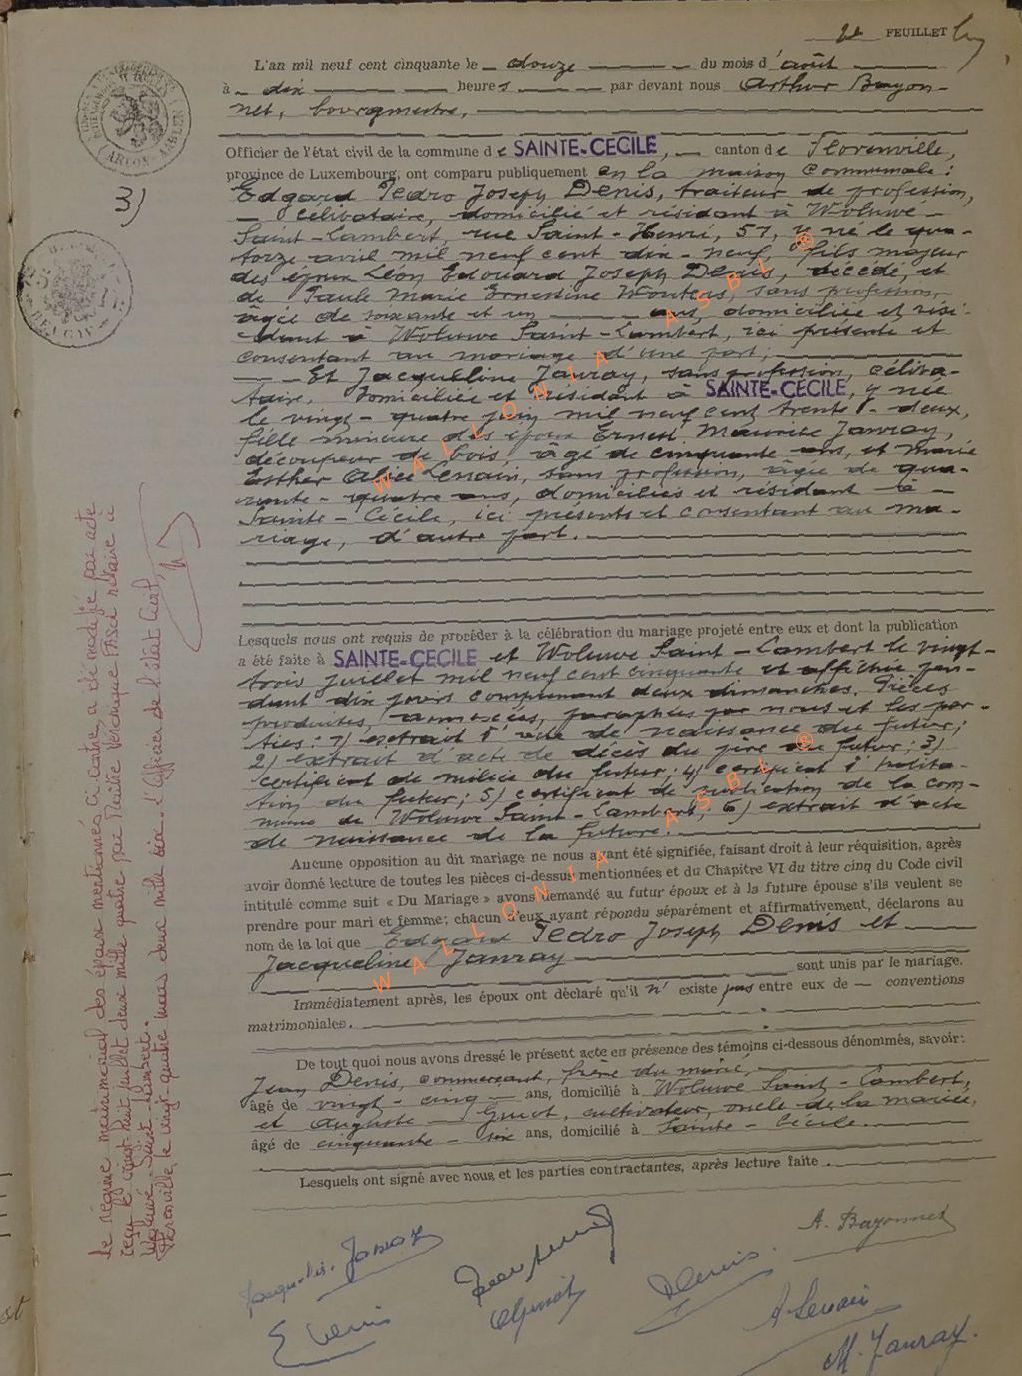 2e FEUILLET
L'an mil neuf cent cinquante le douze du mois d'août
à dix heures par devant nous Arthur Bayon-
net, bourgmestre,
Officier de l'état civil de la commune de SAINTE-CECILE, canton de Florenville,
province de Luxembourg, ont comparu publiquement en la maison communale:
Edgard Pedro Joseph Denis, traiteur de profession,
célibataire, domicilié et résidant à Woluwé-
Saint-Lambert, rue Saint-Henri, 57, y né le qua-
torze avril mil neuf cent dix-neuf, fils majeur
des époux Léon Edouard Joseph Denis, décédé, et
de Paule Marie Ernestine Wouters, sans profession,
agée de soixante et un ans, domiciliée et rési-
dant à Woluwe Saint-Lambert, ici présente et
consentant au mariage d'une part;
Et Jacqueline Jauray, sans profession, céliba-
taire, domiciliée et résidant à SAINTE-CECILE, y née
le vingt-quatre juin mil neuf cent trente-deux,
fille mineure des époux Ernest Maurice Jauray,
découpeur de bois, âgé de cinquante ans, et Marie
Esther Alice Lenain, sans profession, âgée de qua-
rante-quatre ans, domiciliés et résidant à
Sainte-Cécile, ici présents et consentant au ma-
riage, d'autre part.
Lesquels nous ont requis de procéder à la célébration du mariage projeté entre eux et dont la publication
a été faite à SAINTE-CECILE et Woluwe Saint-Lambert le vingt-
trois juillet mil neuf cent cinquante et affichée pen-
dant dix jours comprenant deux dimanches. Pièces
produites, annexées, paraphées par nous et les par-
ties: 1) extrait d'acte de naissance du futur;
2) extrait d'acte de décès du père du futur; 3)
certificat de milice du futur; 4) certificat d'habita-
tion du futur; 5) certificat de publication de la com-
mune de Woluwe Saint-Lambert; 6) extrait d'acte
de naissance de la future.
Aucune opposition au dit mariage ne nous ayant été signifiée, faisant droit à leur réquisition, après
avoir donné lecture de toutes les pièces ci-dessus mentionnées et du Chapitre VI du titre cinq du Code civil
intitulé comme suit « Du Mariage » avons demandé au futur époux et à la future épouse s'ils veulent se
prendre pour mari et femme; chacun d'eux ayant répondu séparément et affirmativement, déclarons au
nom de la loi que Edgard Pedro Joseph Denis et
Jacqueline Jauray
sont unis par le mariage.
Immédiatement après, les époux ont déclaré qu'il n'existe pas entre eux de conventions
matrimoniales.
De tout quoi nous avons dressé le présent acte en présence des témoins ci-dessous dénommés, savoir:
Jean Denis, commerçant, frère du marié,
âgé de vingt-cinq ans, domicilié à Woluwe Saint-Lambert,
et Auguste Guiot, cultivateur, oncle de la mariée,
âgé de cinquante-six ans, domicilié à Sainte-Cécile.
Lesquels ont signé avec nous et les parties contractantes, après lecture faite.
A. Bayonnet
E Denis
Denis
A. Lenain
M. Jauray.
3)
Le régime matrimonial des époux mentionnés ci-contre, a été modifié par acte
reçu le vingt-huit juillet deux mille quatre par Maître Véronique Fasol notaire à
Woluwé-Saint-Lambert.
Florenville, le vingt-quatre mars deux mille six. L'Officier de l'état Civil,
WALLONIA ASBL ®
WALLONIA ASBL ®